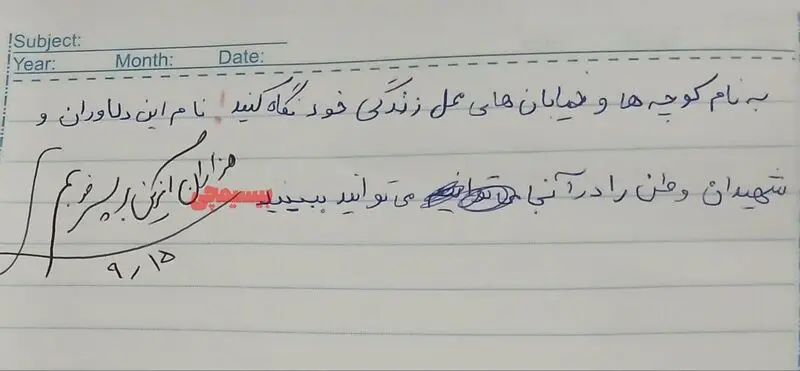 Subject:
Year: Month: Date:
به نام کوچه ها و خیابان های محل زندگی خود نگاه کنید! نام این دلاوران و
شهیدان وطن را در آنجا می توانید ببینید
بیسیمچی
هزاران آفرین بر پسر خوبم
۹٫۱۵